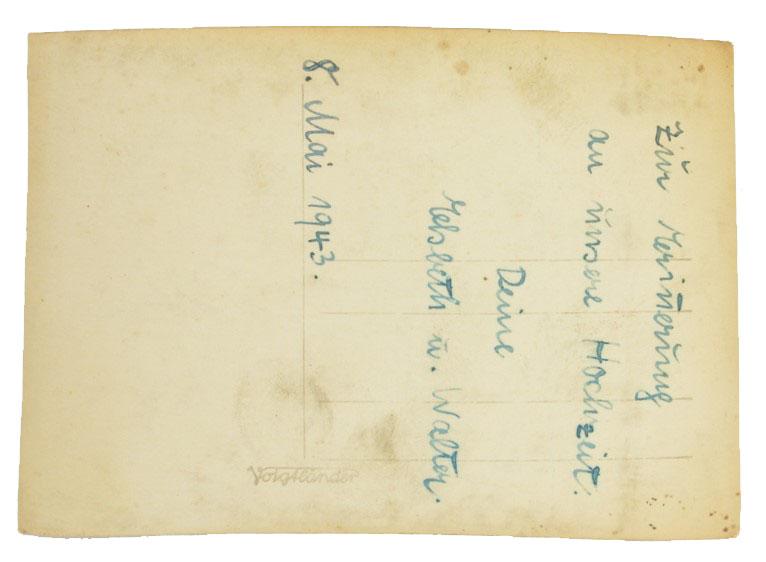 Zur Erinnerung
an unsere Hochzeit.
Deine
Elsbeth u. Walter.
8. Mai 1943.
Voigtländer